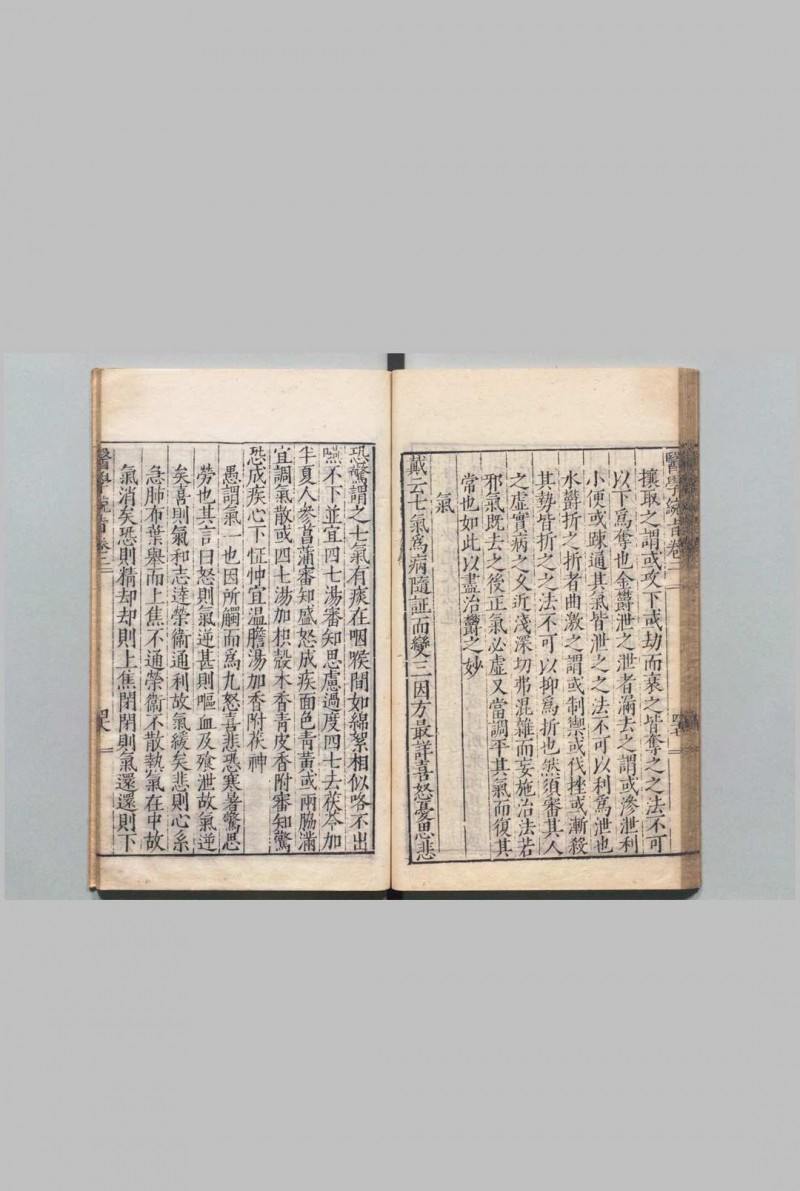 醫學統旨卷二
攘取之謂或攻下或劫而衰之皆奪之之法不可
以下爲奪也金鬱泄之泄者滿去之謂或滲泄利
小便或踈通其氣皆泄之之法不可以利爲泄也
水鬱折之折者曲激之謂或制禦或伐挫或漸殺
其勢皆折之之法不可以抑爲折也然須審其人
之虛實病之久近淺深切弗混雜而妄施治法若
邪氣既去之後正氣必虛又當調平其氣而復其
常也如此以盡治鬱之妙
氣
戴云七氣爲病隨証而變三因方最詳喜怒憂思悲
恐驚謂之七氣有痰在咽喉間如綿絮相似咯不出
嚥不下並宜四七湯審知思慮過度四七去茯苓加
半夏人參菖蒲審知盛怒成疾面色青黃或兩脇滿
宜調氣散或四七湯加枳殼木香青皮香附審知驚
恐成疾心下怔忡宜温膽湯加香附茯神
愚謂氣一也因所觸而爲九怒喜悲恐寒暑驚思
勞也其言曰怒則氣逆甚則嘔血及飱泄故氣逆
矣喜則氣和志達榮衞通利故氣緩矣悲則心系
急肺布葉舉而上焦不通榮衞不散熱氣在中故
氣消矣恐則精却却則上焦閉閉則氣還還則下
醫學統旨卷二